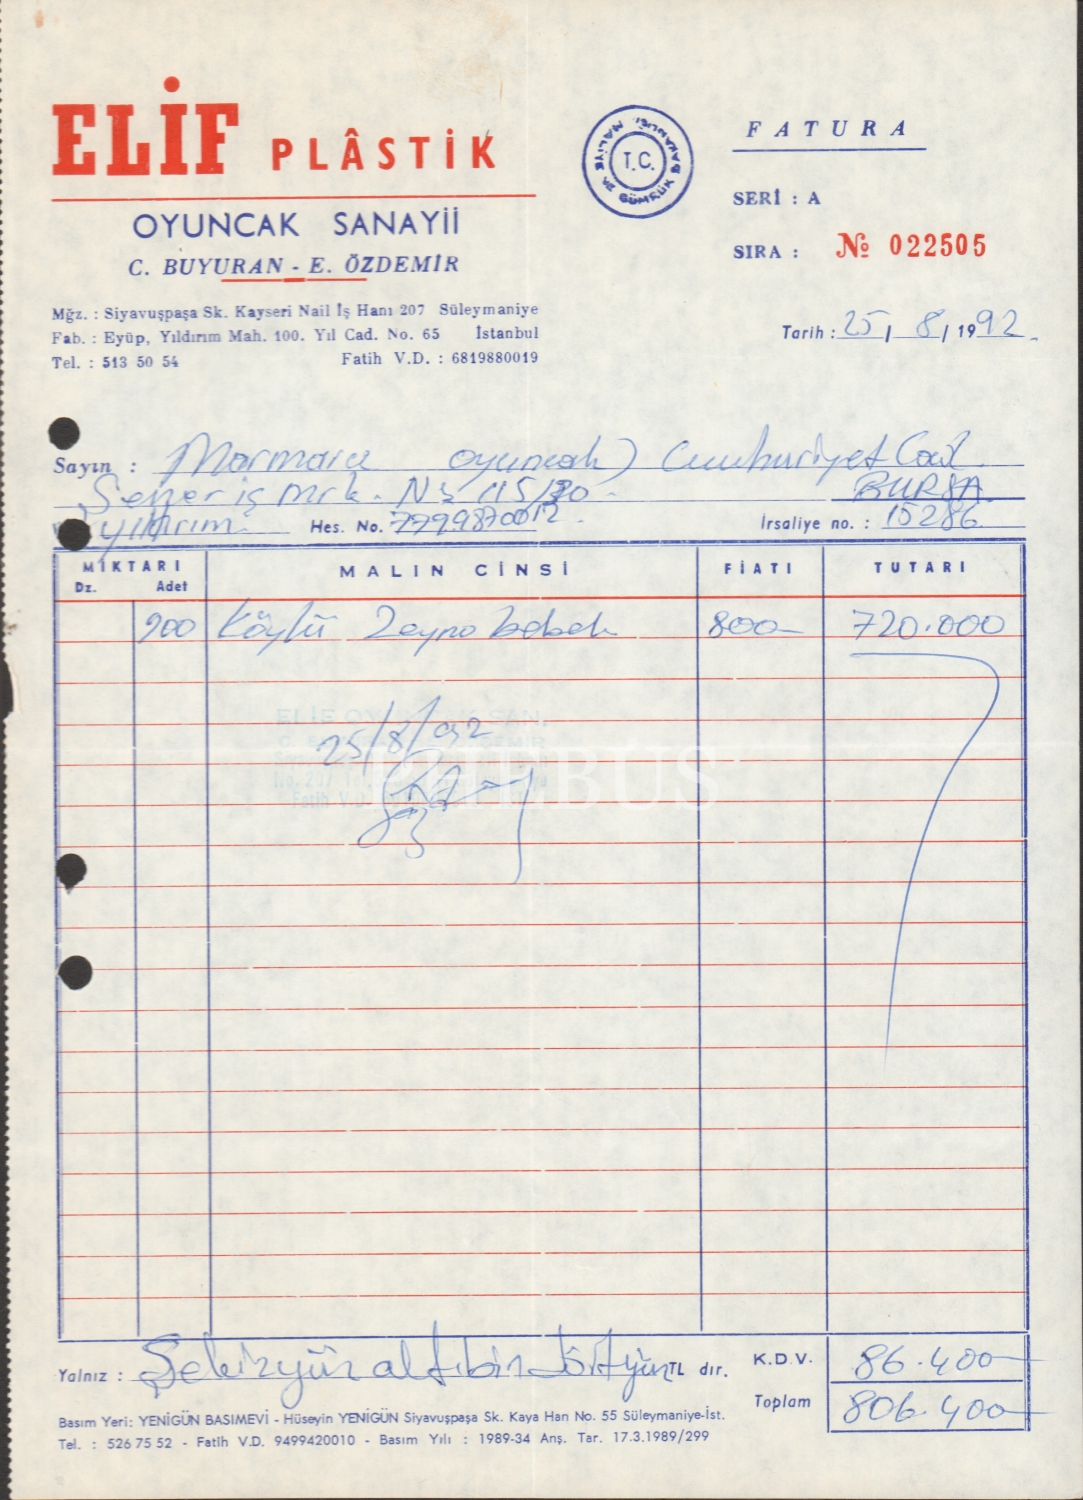 ELİF PLÂSTİK
OYUNCAK SANAYİİ
C. BUYURAN - E. ÖZDEMİR
Mğz. : Siyavuşpaşa Sk. Kayseri Nail İş Hanı 207 Süleymaniye
Fab. : Eyüp, Yıldırım Mah. 100. Yıl Cad. No. 65 İstanbul
Tel. : 513 50 54 Fatih V.D. : 6819880019
T.C.
MALİYE VE GÜMRÜK BAKANLIĞI
FATURA
SERİ : A
SIRA : № 022505
Tarih : 25 / 8 / 1992
Sayın : Marmara oyuncak) Cumhuriyet Cad.
iş Mrk. No 115/ BURSA
yıldırım Hes. No. 7799870012 İrsaliye no. : 15286
MİKTARI MALIN CİNSİ FİATI TUTARI
Dz. Adet
900 Köylü Zeyno bebek 800 720.000
ELİF OYUNCAK SAN.
25/8/92
PHEBUS
Fatih V.D.
Yalnız : Sekizyüzaltıbindörtyüz TL dır. K.D.V. 86.400
Toplam 806.400
Basım Yeri: YENİGÜN BASIMEVİ - Hüseyin YENİGÜN Siyavuşpaşa Sk. Kaya Han No. 55 Süleymaniye-İst.
Tel. : 526 75 52 - Fatih V.D. 9499420010 - Basım Yılı : 1989-34 Anş. Tar. 17.3.1989/299